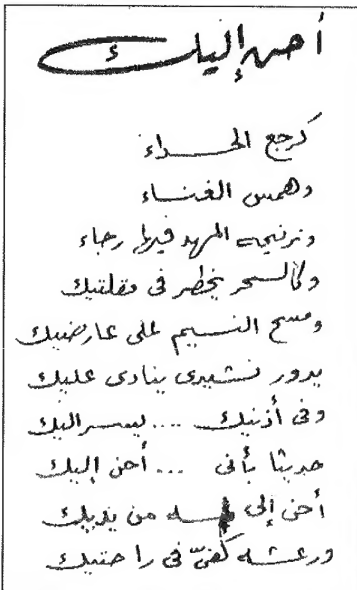 أحن إليك
كرجع الحداء
وهمس الغناء
وترنيمه المهد فيها رجاء
وكالسحر يخطر فى مقلتيك
ومسح النسيم على عارضيك
يدور نشيدى ينادى عليك
وفى أذنيك .... ليسر اليك
حديثا بأنى ... أحن إليك
أحن إلى من يديك
ورعشه كفىّ فى راحتيك